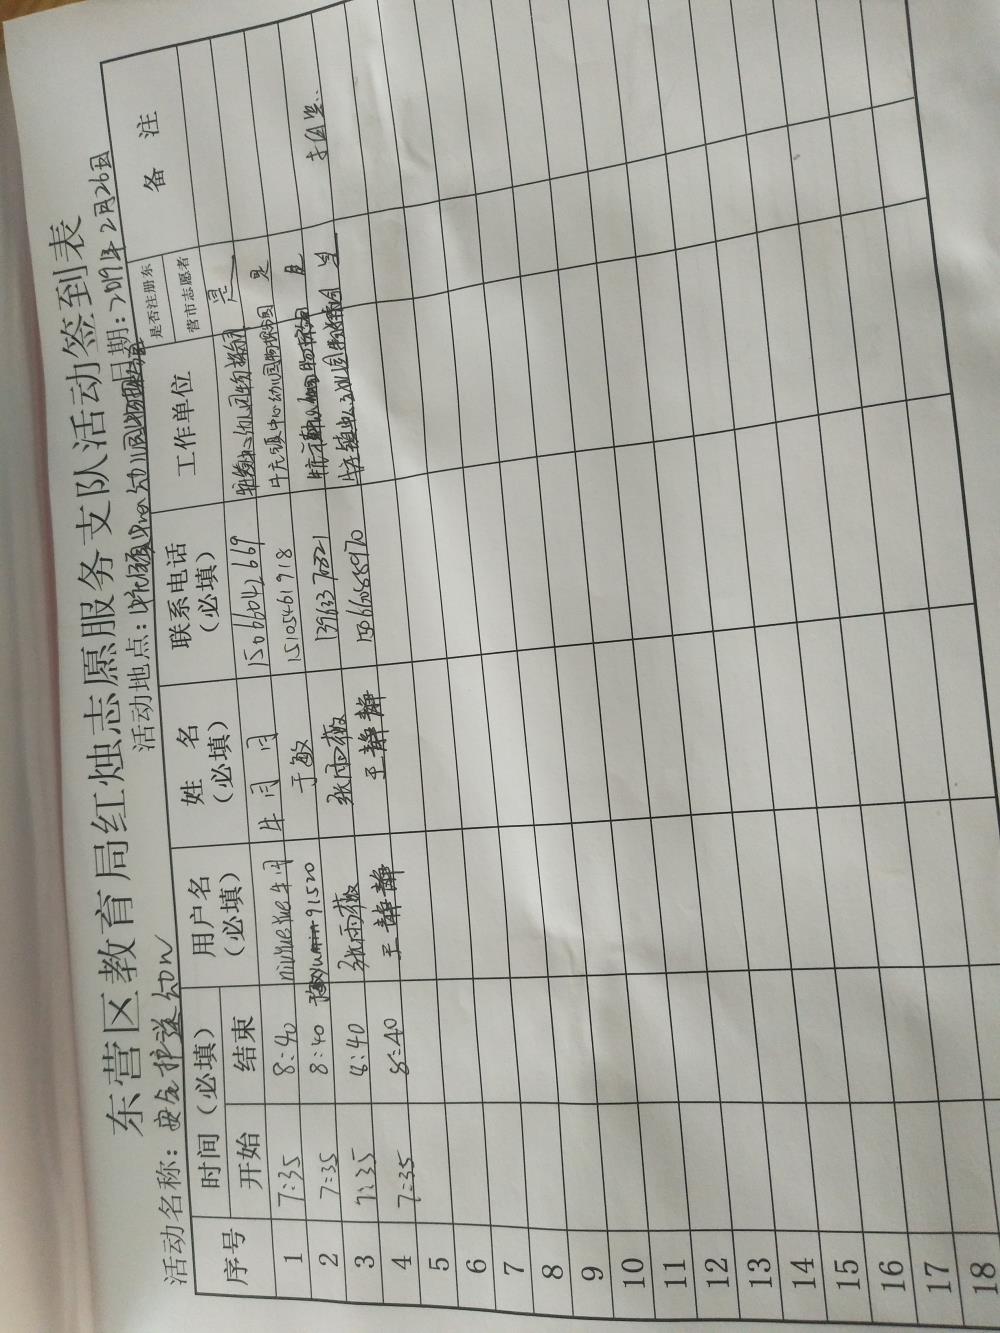 东营区教育局红烛志愿服务支队活动签到表
活动名称：安全护送 活动地点：中心幼儿园 日期：2019年2月26日
序号 时间（必填） 用户名（必填） 姓名（必填） 联系电话（必填） 工作单位 是否注册东营市志愿者 备注
开始 结束
1 7:35 8:40 niuyueyue牛月 牛月月 15066042669 中心幼儿园 是
2 7:35 8:40 yumin91520 于敏 15105461918 牛庄镇中心幼儿园 是
3 7:35 8:40 张雨薇 张雨薇 13963370321 中心幼儿园 是
4 7:35 8:40 王静静 王静静 牛庄镇中心幼儿园 是
5
6
7
8
9
10
11
12
13
14
15
16
17
18